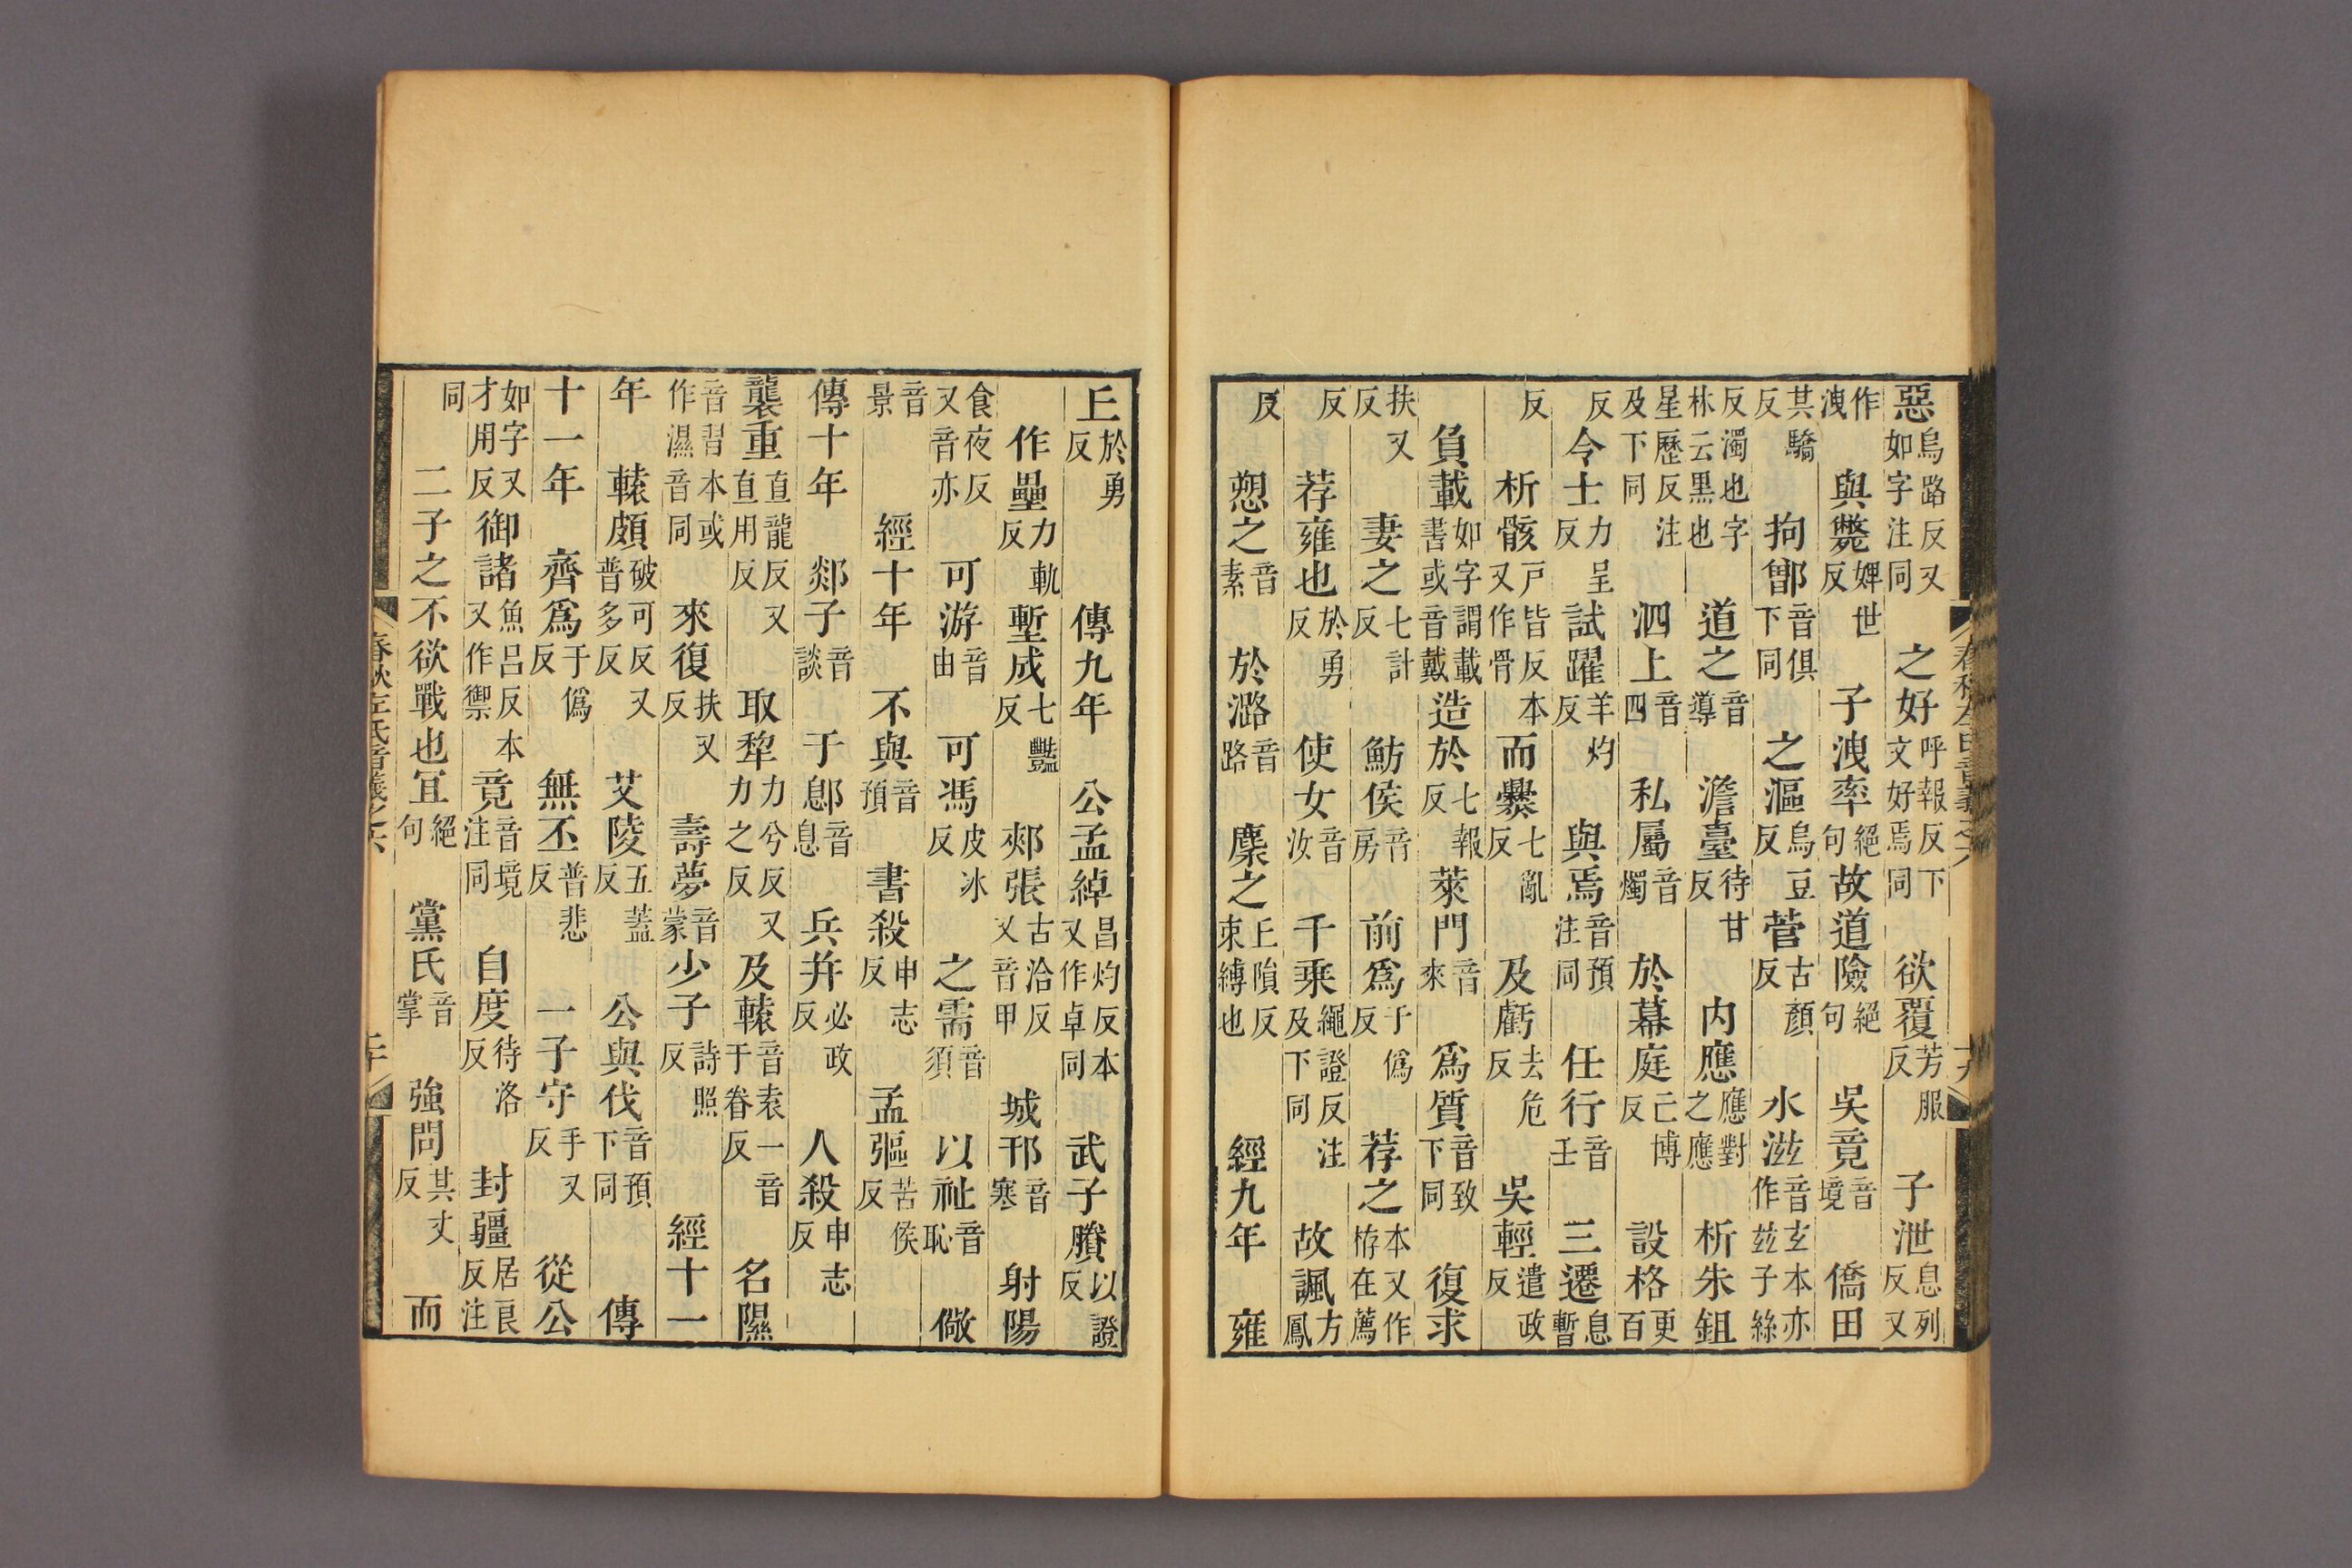 惡烏路反又如字注同　之好呼報反下文好焉同　欲覆芳服反　子泄息列反又
作洩　與斃婢世反　子洩率絕句故道險絕句　吳竟音境　僑田
其驕反　拘鄫音俱下同　之漚烏豆反菅古顏反　水滋音玄本亦作茲子絲
反濁也字林云黑也　道之音導　澹臺待甘反　內應應對之應　析朱鉏
星歷反注及下同　泗上音四　私屬音燭　於幕庭亡博反　設格更百
反令士力呈反　試躍羊灼反　與焉音預注同　任行音壬　三遷息暫
反　析骸戶皆反本又作骨而爨七亂反　及虧去危反　吳輕遣政反
負載如字謂載書或音戴造於七報反萊門音來　爲質音致下同　復求
扶又反　妻之七計反　魴侯音房　前爲于僞反　荐之本又作栫在薦
反　荐雍也於勇反　使女音汝　千乘繩證反注及下同　故諷方鳳
反　愬之音素　於潞音路　麇之丘隕反束縛也　經九年　雍
丘於勇反　傳九年　公孟綽昌灼反本又作卓同　武子賸以證反
作壘力軌反　塹成七豔反　郟張古洽反又音甲　城邗音寒　射陽
食夜反又音亦　可游音由　可馮皮冰反　之需音須　以祉音恥　儆
音景　經十年　不與音預　書殺申志反　孟彄苦侯反
傳十年　郯子音談　于鄎音息　兵并必政反　人殺申志反
襲重直龍反又直用反　取犂力兮反又力之反　及轅音袁一音于眷反　名隰
音習本或作濕音同　來復扶又反　壽夢音蒙少子詩照反　經十一
年　轅頗破可反又普多反　艾陵五蓋反　公與伐音預下同　傳
十一年　齊爲于僞反　無丕普悲反　一子守手又反　從公
如字又才用反御諸魚呂反本又作禦　竟音境注同　自度待洛反　封疆居良反注
同　二子之不欲戰也宜絕句　黨氏音掌　強問其丈反　而
春秋左氏音義之六